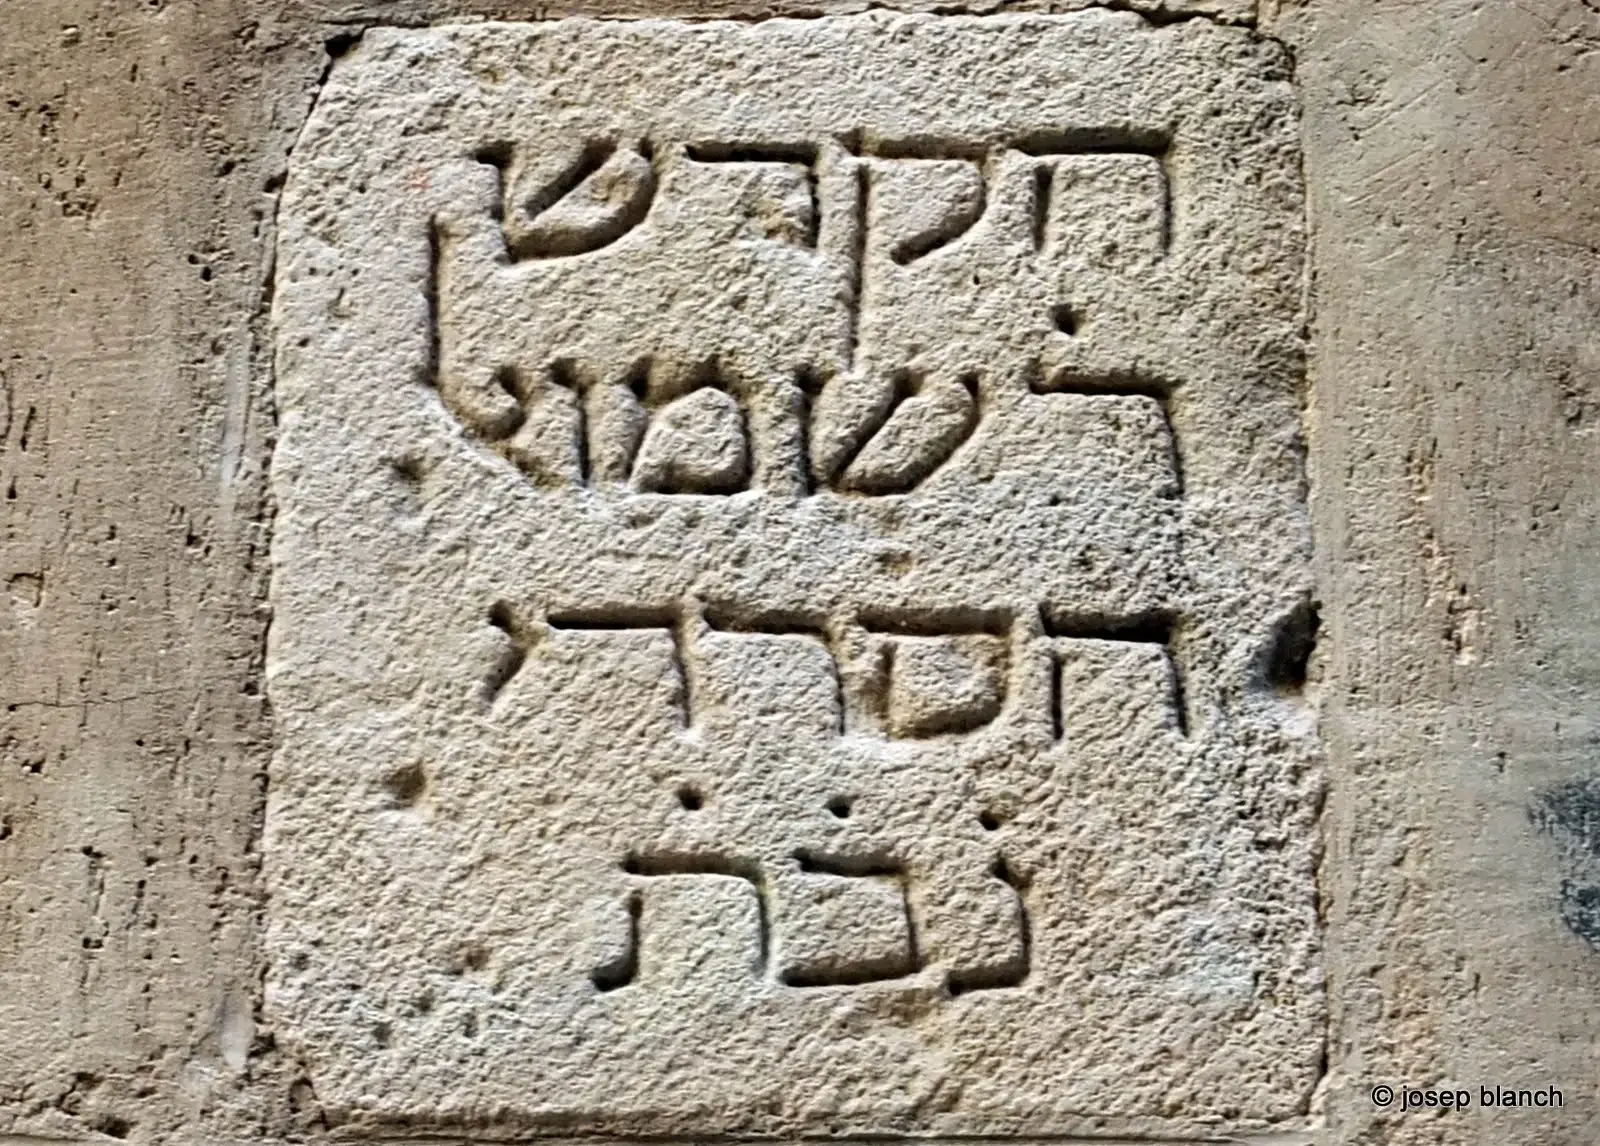 הקדש
ר̇ שמואל
הסרדי
נ̇ב̇ת̇
© josep blanch